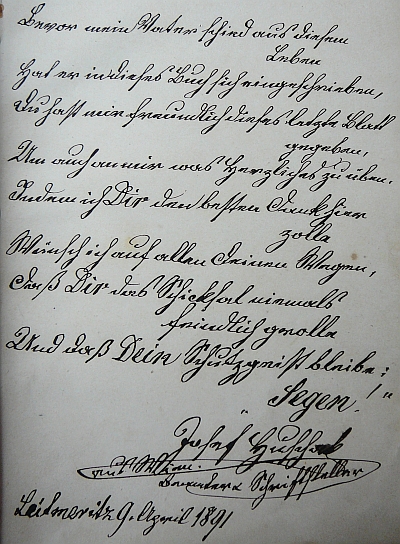 Bevor mein Vater schied aus diesem
Leben
Hat er in dieses Buch sich eingeschrieben,
Du hast mir freundlich dieses letzte Blatt
gegeben,
Um auch an mir was Herzliches zu üben.
Indem ich Dir den besten Dank hier
zolle
Wünsch ich auf allen Deinen Wegen,
Daß Dir das Schicksal niemals
feindlich grolle
Und daß Dein Schutzgeist bleibe:
„Segen!“
Josef
aus Wien.
Schriftsteller
Leitmeritz 9. April 1891